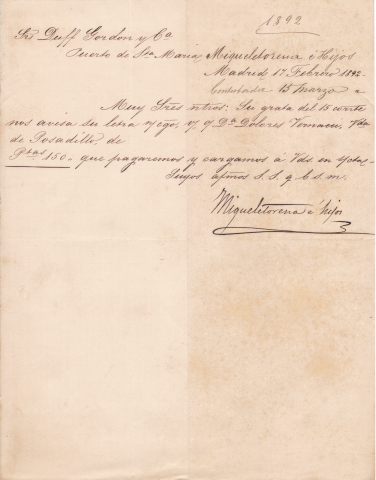 1892
Sres Duff Gordon y Ca
Puerto de Sta Maria Migueletorena é Hijos
Madrid 17 Febrero 1892
Contestada 15 marzo
Muy Sres ntros: Su grata del 15 corrte
nos avisa su letra n/cgo, y Da Dolores Vda
de Posadillo, de
Ptas 150- que pagaremos y cargamos á Vds. en
Suyos afmos S.S. q. b. s. m.
Migueletorena é hijos